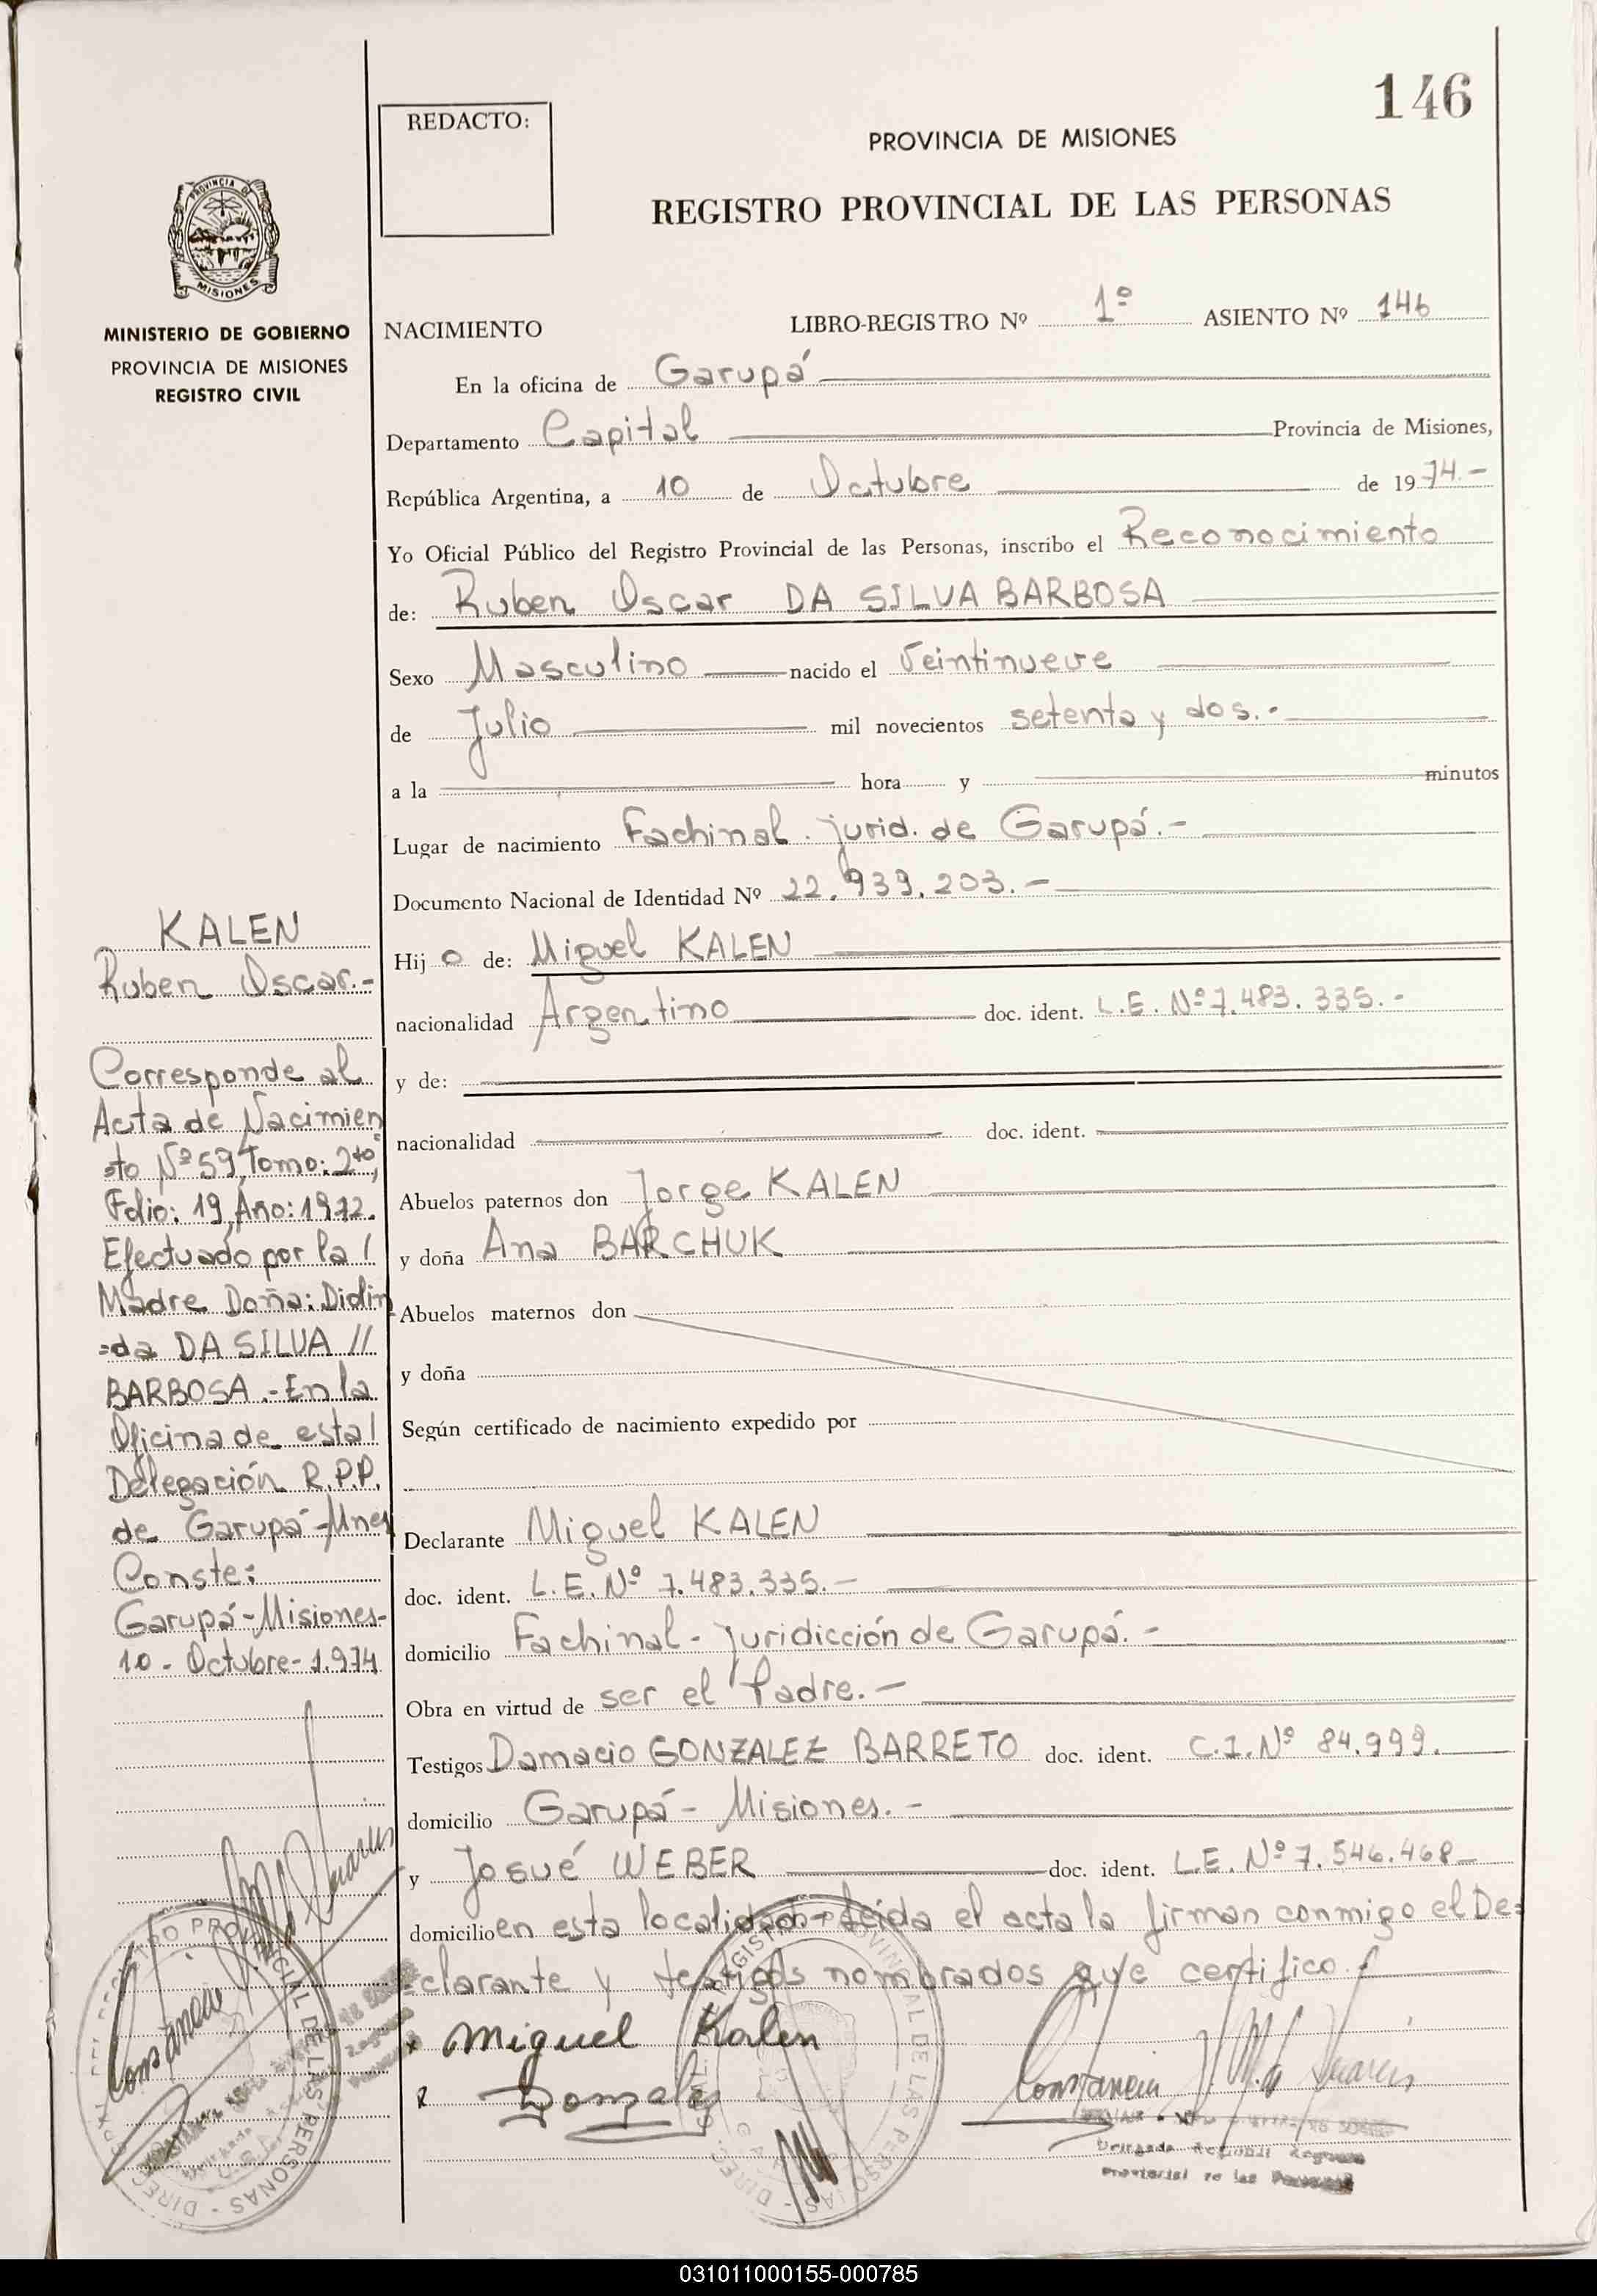 146
REDACTO:
PROVINCIA DE MISIONES
REGISTRO PROVINCIAL DE LAS PERSONAS
PROVINCIA DE
MISIONES
MINISTERIO DE GOBIERNO
PROVINCIA DE MISIONES
REGISTRO CIVIL
NACIMIENTO LIBRO-REGISTRO Nº 1º ASIENTO Nº 146
En la oficina de Garupá
Departamento Capital Provincia de Misiones,
República Argentina, a 10 de Octubre de 1974.-
Yo Oficial Público del Registro Provincial de las Personas, inscribo el Reconocimiento
de: Ruben Oscar DA SILVA BARBOSA
Sexo Masculino nacido el Veintinueve
de Julio mil novecientos setenta y dos.-
a la hora y minutos
Lugar de nacimiento Fachinal. jurid. de Garupá.-
Documento Nacional de Identidad Nº 22.939.203.-
Hijo de: Miguel KALEN
nacionalidad Argentino doc. ident. L.E. Nº 7.483.335.-
y de:
nacionalidad doc. ident.
Abuelos paternos don Jorge KALEN
y doña Ana BARCHUK
Abuelos maternos don
y doña
Según certificado de nacimiento expedido por
Declarante Miguel KALEN
doc. ident. L.E. Nº 7.483.335.-
domicilio Fachinal - juridicción de Garupá.-
Obra en virtud de ser el Padre.-
Testigos Damacio GONZALEZ BARRETO doc. ident. C.I. Nº 84.999.
domicilio Garupá - Misiones.-
y Josué WEBER doc. ident. L.E. Nº 7.546.468-
domicilio en esta localidad - leida el acta la firman conmigo el De=
=clarante y testigos nombrados que certifico.
Miguel Kalen
Gonzalez
Constancia
KALEN
Ruben Oscar.-
Corresponde al
Acta de Nacimien
=to Nº 59, Tomo: 2to,
Folio: 19, Año: 1972.
Efectuado por la /
Madre Doña: Didin
=da DA SILVA //
BARBOSA.- En la
Oficina de esta /
Delegación R.P.P.
de Garupá - Mnes
Conste:
Garupá - Misiones-
10 - Octubre - 1.974
Constancia
031011000155-000785